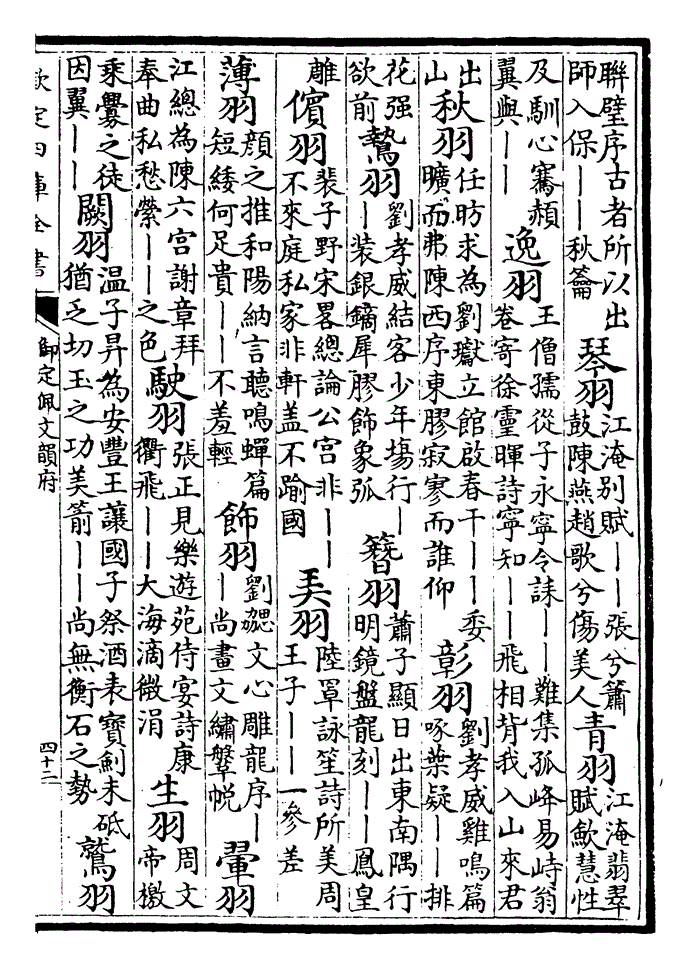 聯璧序古者所以出師入保——秋籥 琴羽 江淹別賦——張兮簫鼓陳燕趙歌兮傷美人 青羽 江淹翡翠賦歛慧性
及馴心騫頳翼與—— 逸羽 王僧孺從子永寧令誄——難集孤峰易峙翁卷寄徐靈暉詩寧知——飛相背我入山來君
出山 秋羽 任昉求為劉瓛立館啟春干——委曠而弗陳西序東膠寂寥而誰仰 彰羽 劉孝威雞鳴篇啄葉疑——排
花强欲前 鷙羽 劉孝威結客少年塲行——装銀鏑犀膠飾象弧 簪羽 蕭子顯日出東南隅行明鏡盤龍刻——鳳皇
雕 儐羽 裴子野宋畧總論公宫非——不來庭私家非軒盖不踰國 美羽 陸罩詠笙詩所美周王子——一參差
薄羽 顔之推和陽納言聽鳴蟬篇短緌何足貴——不羞輕 飾羽 劉勰文心雕龍序——尚畫文繡鞶帨 翬羽
江總為陳六宫謝章拜奉曲私愁縈——之色 駛羽 張正見樂遊苑侍宴詩康衢飛——大海滴微涓 生羽 周文帝檄
乘釁之徒因翼—— 闕羽 温子昇為安豐王讓國子祭酒表寶劍未砥猶乏切玉之功美箭——尚無衡石之勢 鷲羽
欽定四庫全書
御定佩文韻府
四十二